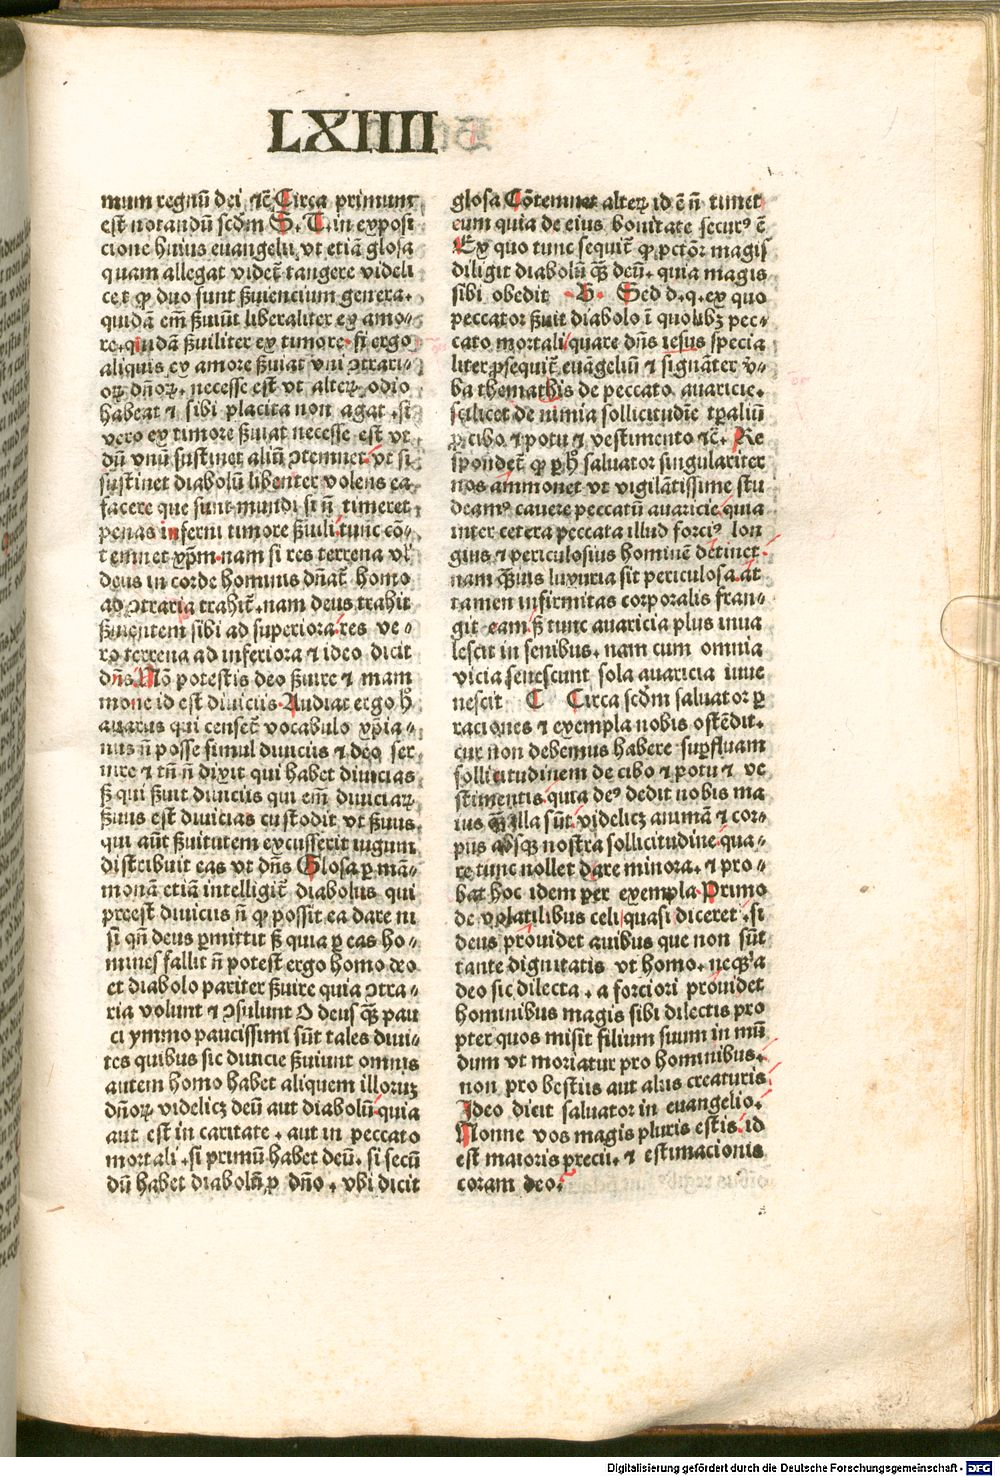 LXIIII
mum regnū dei ⁊cē Circa primum
est notandū scdm S. T. in exposi
cione huius euangelii vt etiā glosa
quam allegat videt̄ tangere videli
cet ꝙ duo sunt ẜuiencium genera.
quidā em̄ ẜuiūt liberaliter ex amo⸗
re. quidā ẜuiliter ex timore. si ergo
aliquis ex amore ẜuiat vni ꝯtrari⸗
oꝝ dn̄oꝝ. necesse est vt alterꝝ odio
habeat ⁊ sibi placita non agat. si
vero ex timore ẜuiat necesse est vt
dū vnū sustinet aliū ꝯtemnet. vt si
sustinet diabolū libenter volens ea
facere que sunt mundi si n̄ timeret
penas inferni timore ẜuili tunc cō⸗
temnet xp̄m. nam si res terrena vl'
deus in corde hominis dn̄at̄ homo
ad ꝯtraria trahit̄. nam deus trahit
ẜuientem sibi ad superiora. res ve⸗
ro terrena ad inferiora ⁊ ideo dicit
dn̄s Nō potestis deo ẜuire ⁊ mam
mone id est diuiciis. Audiat ergo h̄
auarus qui censet̄ vocabulo xp̄ia⸗
nus n̄ posse simul diuiciis ⁊ deo ser
uire ⁊ tn̄ n̄ dixit qui habet diuicias
ẜ qui ẜuit diuiciis qui em̄ diuiciaꝝ
ẜuus est diuicias custodit vt ẜuus
qui aūt ẜuitutem excusserit iugum
distribuit eas vt dn̄s Glosa ꝑ mā⸗
monā etiā intelligit̄ diabolus qui
preest diuiciis n̄ ꝙ possit ea dare ni
si qn̄ deus ꝑmittit ẜ quia ꝑ eas ho⸗
mines fallit n̄ potest ergo homo deo
et diabolo pariter ẜuire quia ꝯtra⸗
ria volunt ⁊ ꝯsulunt O deus ꝙ̄ pau
ci ymmo paucissimi sūt tales diui⸗
tes quibus sic diuicie ẜuiunt omnis
autem homo habet aliquem illoruꝫ
dn̄oꝝ videlicꝫ deū aut diabolū quia
aut est in caritate. aut in peccato
mortali. si primū habet deū. si secū
dū habet diabolū ꝓ dn̄o. vbi dicit
glosa Cōtemnet alterꝝ id ē n̄ timet
eum quia de eius bonitate securꝰ ē
Ex quo tunc sequit̄ ꝙ pctōr magis
diligit diabolū ꝙ̄ deū. quia magis
sibi obedit .B. Sed d.q. ex quo
peccator ẜuit diabolo ī quolibꝫ pec⸗
cato mortali quare dn̄s iesus specia
liter ꝓsequit̄ euāgeliū ⁊ signāter v̄⸗
ba thematis de peccato auaricie.
scilicet de nimia sollicitudīe tꝑaliū
ꝓ cibo ⁊ potu ⁊ vestimento ⁊cē. Re
spondet̄ ꝙ ꝑ h̄ saluator singulariter
nos ammonet vt vigilātissime stu
deamꝰ cauere peccatū auaricie quia
inter cetera peccata illud forciꝰ lon
gius ⁊ periculosius hominē detinet.
nam ꝙ̄uis luxuria sit periculosa. at
tamen infirmitas corporalis fran⸗
git eam ẜ tunc auaricia plus inua
lescit in senibus. nam cum omnia
vicia senescunt sola auaricia iuue
nescit C Circa scdm saluator ꝑ
raciones ⁊ exempla nobis ostēdit.
cur non debemus habere supꝑfluam
sollicitudinem de cibo ⁊ potu ⁊ ve
stimentis quia deꝰ dedit nobis ma
ius ꝙ̄ illa sūt videlicꝫ animā ⁊ cor⸗
pus absqꝫ nostra sollicitudine. qua⸗
re tunc nollet dare minora. ⁊ pro⸗
bat hoc idem per exempla. Primo
de volatilibus celi quasi diceret. si
deus prouidet auibus que non sūt
tante dignitatis vt homo. neqꝫ a
deo sic dilecta. a forciori prouidet
hominibus magis sibi dilectis pro
pter quos misit filium suum in mū
dum vt moriatur pro hominibus.
non pro bestiis aut aliis creaturis.
Ideo dicit saluator in euangelio.
Nonne vos magis pluris estis. id
est maioris precii. ⁊ estimacionis
coram deo.
Digitalisierung gefördert durch die Deutsche Forschungsgemeinschaft - DFG